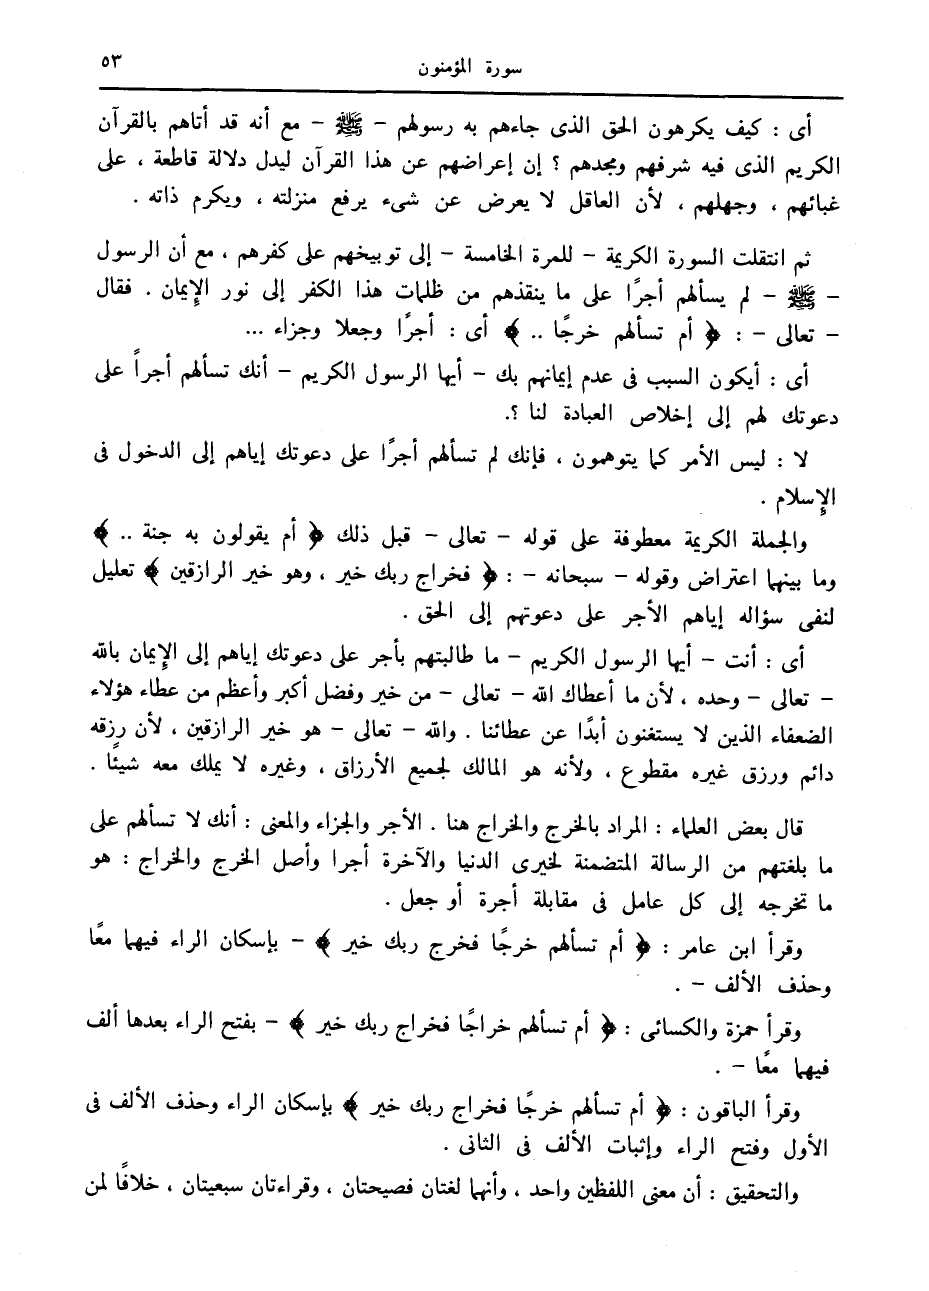 سورة المؤمنون ٥٣
أى : كيف يكرهون الحق الذى جاءهم به رسولهم - ﷺ - مع أنه قد أتاهم بالقرآن
الكريم الذى فيه شرفهم ومجدهم ؟ إن إعراضهم عن هذا القرآن ليدل دلالة قاطعة ، على
غبائهم ، وجهلهم ، لأن العاقل لا يعرض عن شىء يرفع منزلته ، ويكرم ذاته .
ثم انتقلت السورة الكريمة - للمرة الخامسة - إلى توبيخهم على كفرهم ، مع أن الرسول
- ﷺ - لم يسألهم أجرًا على ما ينقذهم من ظلمات هذا الكفر إلى نور الإيمان . فقال
- تعالى - : ﴿ أم تسألهم خرجًا .. ﴾ أى : أجرًا وجعلا وجزاء ...
أى : أيكون السبب فى عدم إيمانهم بك - أيها الرسول الكريم - أنك تسألهم أجراً على
دعوتك لهم إلى إخلاص العبادة لنا ؟.
لا : ليس الأمر كما يتوهمون ، فإنك لم تسألهم أجرًا على دعوتك إياهم إلى الدخول فى
الإسلام .
والجملة الكريمة معطوفة على قوله - تعالى - قبل ذلك ﴿ أم يقولون به جنة .. ﴾
وما بينهما اعتراض وقوله - سبحانه - : ﴿ فخراج ربك خير ، وهو خير الرازقين ﴾ تعليل
لنفى سؤاله إياهم الأجر على دعوتهم إلى الحق .
أى : أنت - أيها الرسول الكريم - ما طالبتهم بأجر على دعوتك إياهم إلى الإيمان بالله
- تعالى - وحده ، لأن ما أعطاك الله - تعالى - من خير وفضل أكبر وأعظم من عطاء هؤلاء
الضعفاء الذين لا يستغنون أبدًا عن عطائنا . والله - تعالى - هو خير الرازقين ، لأن رزقه
دائم ورزق غيره مقطوع ، ولأنه هو المالك لجميع الأرزاق ، وغيره لا يملك معه شيئًا .
قال بعض العلماء : المراد بالخرج والخراج هنا . الأجر والجزاء والمعنى : أنك لا تسألهم على
ما بلغتهم من الرسالة المتضمنة لخيرى الدنيا والآخرة أجرا وأصل الخرج والخراج : هو
ما تخرجه إلى كل عامل فى مقابلة أجرة أو جعل .
وقرأ ابن عامر : ﴿ أم تسألهم خرجًا فخرج ربك خير ﴾ - بإسكان الراء فيهما معًا
وحذف الألف - .
وقرأ حمزة والكسائى : ﴿ أم تسألهم خراجًا فخراج ربك خير ﴾ - بفتح الراء بعدها ألف
فيهما معًا - .
وقرأ الباقون : ﴿ أم تسألهم خرجًا فخراج ربك خير ﴾ بإسكان الراء وحذف الألف فى
الأول وفتح الراء وإثبات الألف فى الثانى .
والتحقيق : أن معنى اللفظين واحد ، وأنهما لغتان فصيحتان ، وقراءتان سبعيتان ، خلافًا لمن